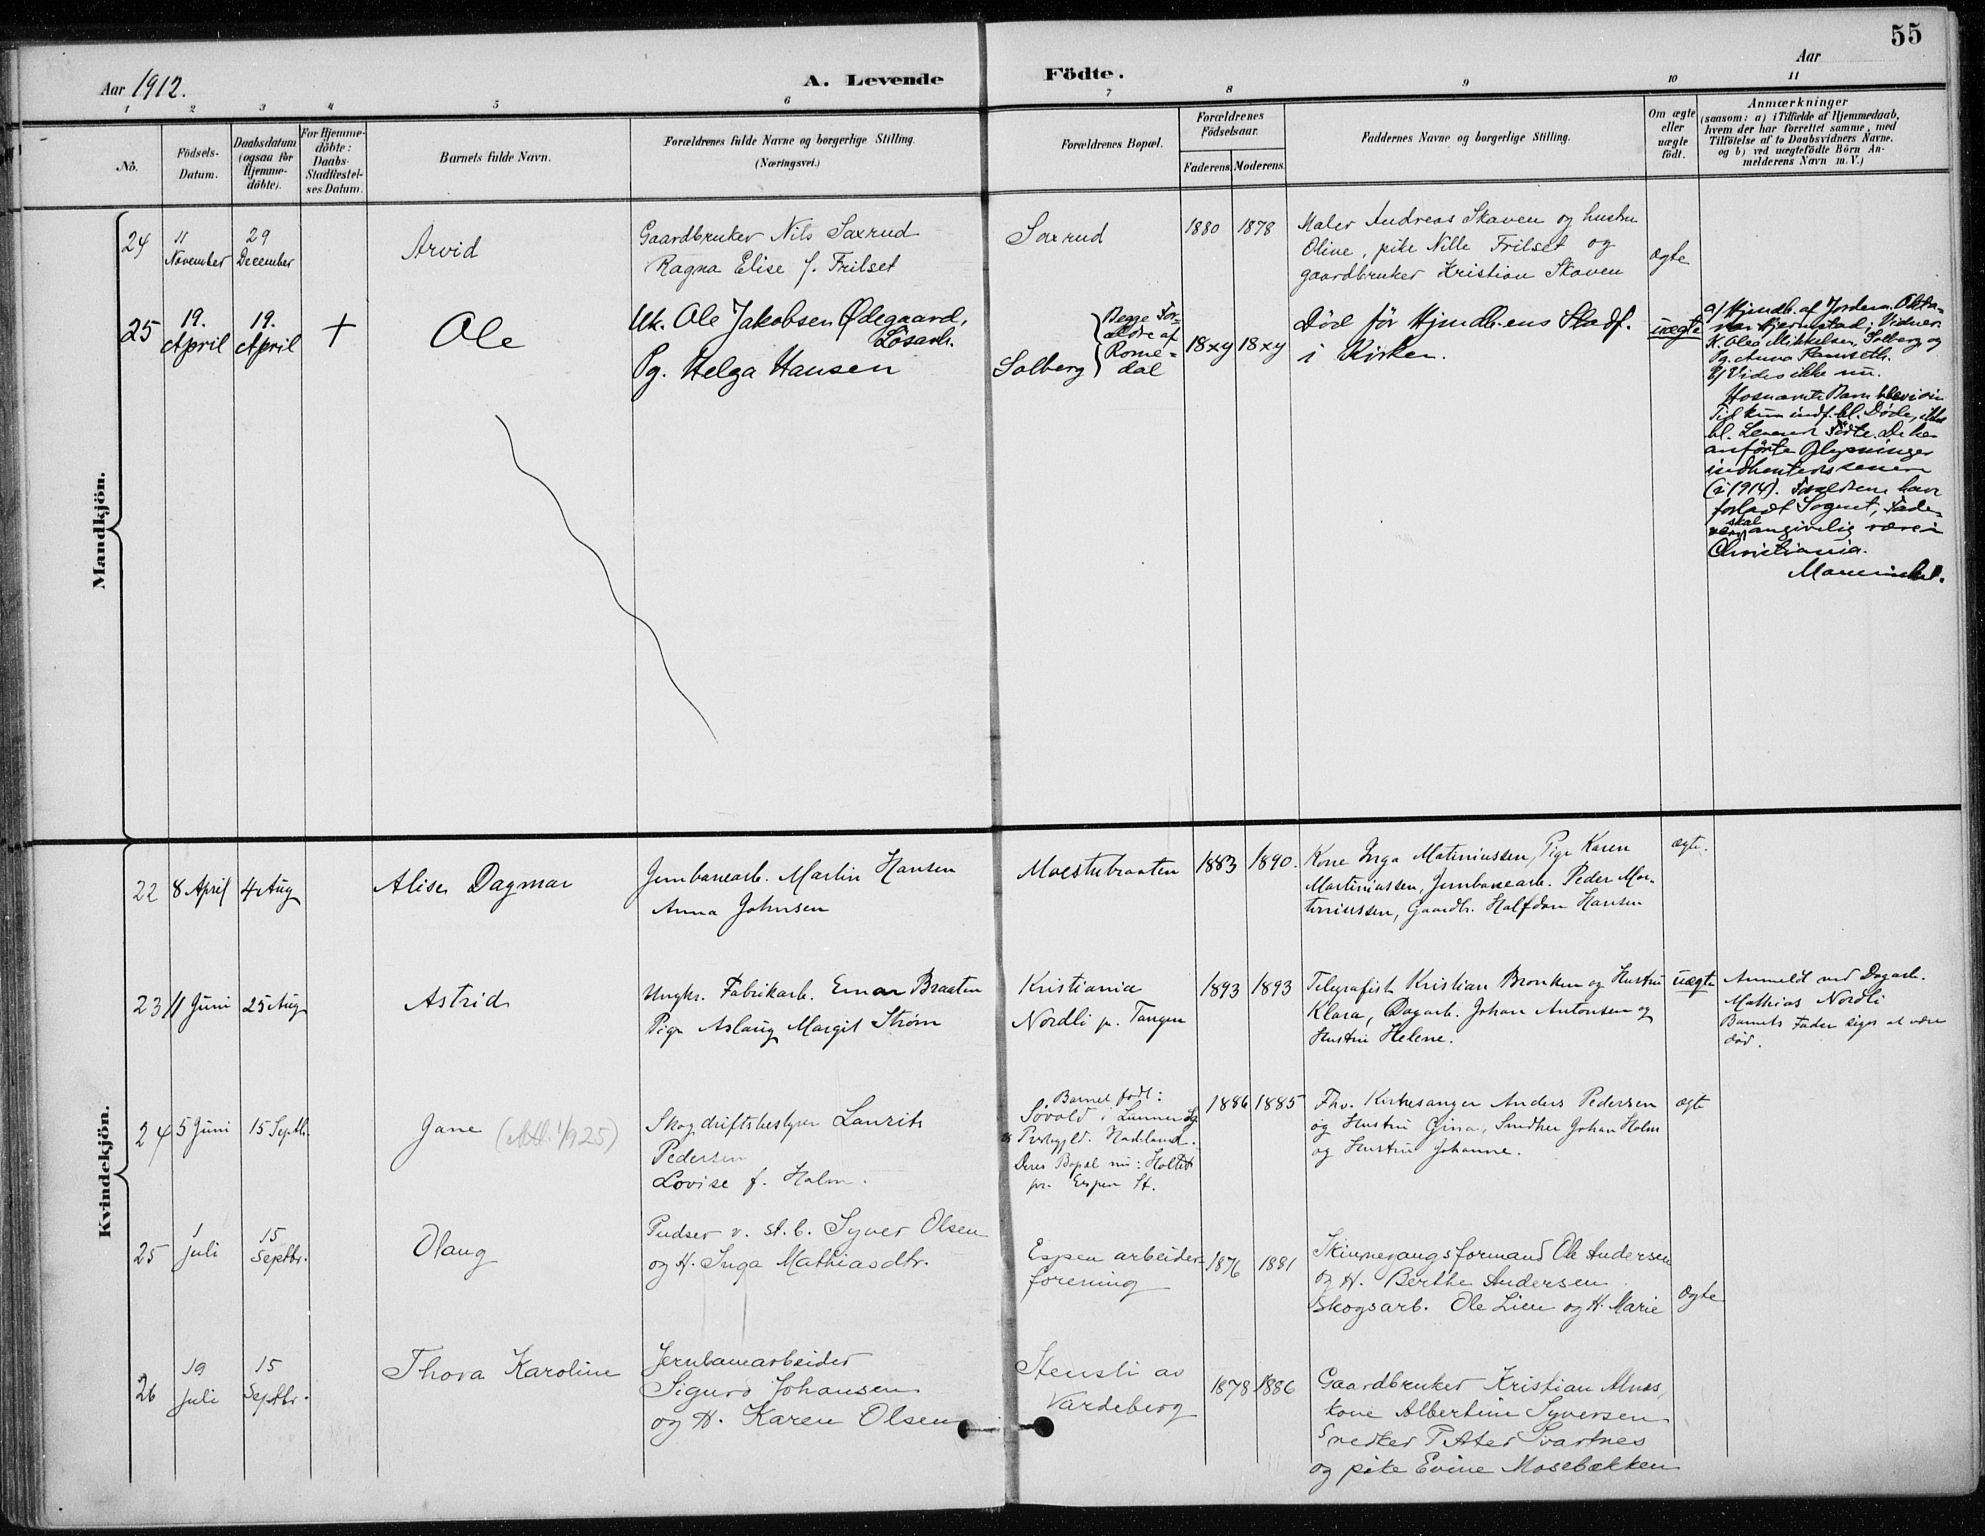 55
Aar 1912.
A. Levende
Födte.
Aar
1 2 3 4 5 6 7 8 9 10 11
No.
Födsels-
Datum.
Daabsdatum
(ogsaa for
Hjemme-
döbte).
For Hjemme-
döbte:
Daabs-
Stadfæstel-
ses Datum.
Barnets fulde Navn.
Forældrenes fulde Navne og borgerlige Stilling.
(Næringsvei.)
Forældrenes Bopæl.
Forældrenes
Födselsaar.
Faderens.
Moderens.
Faddernes Navne og borgerlige Stilling.
Om ægte
eller
uægte
født.
Anmærkninger
(saasom: a) i Tilfælde af Hjemmedaab,
hvem der har forrettet samme, med
Tilföielse af to Daabsvidners Navne.
og b) ved uægtefödte Börn An-
melderens Navn m. V.)
Mandkjön.
24
11
November
29
December
Arvid
Gaardbruker Nils Saxrud
Ragna Elise f. Frilset
Saxrud
1880
1878
Maler Andreas Skaven og hustru
Oline, pike Nille Frilset og
gaardbruker Kristian Skaven
ægte
25
19.
April
19.
April
+
Ole
Uk. Ole Jakobsen Ødegaard,
Løsarb.
Pg. Helga Hansen
Solberg
Begge For-
ældre af
Rome-
dal
18xy
18xy
Død før Hjmdb.ens Stadf.
i Kirken.
uægte
a) Hjmdb. af Jordm.
Hjernstad; Vidner:
K. Olea Mikkelsen, Solberg og
Pg. Anna Ramseth.
b) Vides ikke nu.
Hosnævnte Barn blev i sin
Tid kun indf. bl. Døde, ikke
bl. Levende Fødte. De her
anførte Oplysninger
indhentedes senere
(i 1914). Forældrene have
forladt Sognet, Fade-
ren skal angivelig være i
Christiania.
Kvindekjön.
22
8 April
4 Aug
Alise Dagmar
Jernbanearb. Martin Hansen
Anna Johnsen
Moestubraaten
1883
1890.
Kone Inga Martiniussen, Pige Karen
Martiniussen, Jernbanearb. Peder Mar-
tiniussen, Gaardb. Halfdan Hansen
ægte.
23
11 Juni
25 Aug
Astrid
Ungkr. Fabrikarb. Einar Braaten
Pige Aslaug Margit Strøm
Kristiania
Nordli p. Tangen
1893
1893
Telegrafist Kristian Bronken og Hustru
Klara, Dagarb. Johan Antonsen og
Hustru Helene.
uægte
Anmeldt ved Dagarb.
Mathias Nordli
Barnets Fader siges at være
død.
24
5 Juni
15 Septb.
Jane
Skogdriftsbestyrer Laurits
Pedersen
Lovise f. Holm.
Barnet født:
Søvold i Lunner Sg.
Prestgjld. Hadeland.
Deres Bopæl nu: Holtet
pr. Espen St.
1886
1885
Fhv. Kirkesanger Anders Pedersen
og Hustru Gina, Smedker Johan Holm
og Hustru Johanne.
ægte
25
1
juli
15
Septbr.
Olaug
Pudser v. st. b. Syver Olsen
og H. Inga Mathiasdtr.
Espen arbeider-
forening
1876
1881
Skinnegangsformand Ole Andersen
og H. Berthe Andersen
Skogsarb. Ole Lien og H. Marie
ægte
26
19
juli
15
Septbr.
Thora Karoline
Jernbanearbeider
Sigurd Johansen
og H. Karen Olsen
Stensli av
Vardeberg
1878
1886
Gaardbruker Kristian Alnæs,
kone Albertine Syversen
Snedker Petter Svartnes
og pike Evine Mosebækken